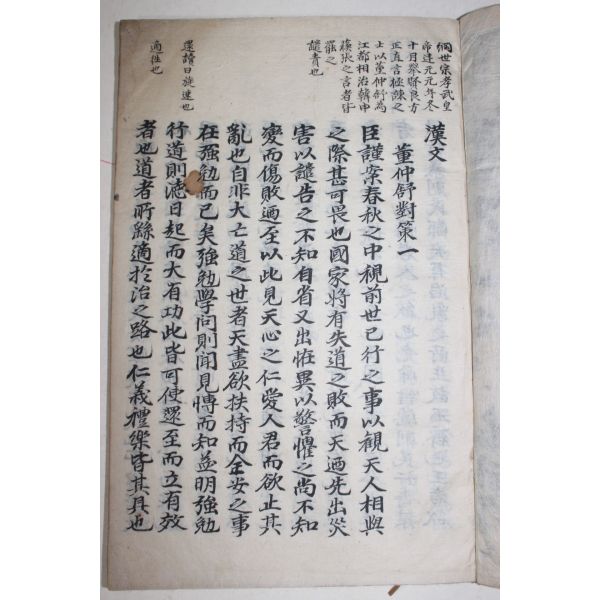 綱世宗孝武皇
帝建元元年冬
十月擧賢良方
正直言極諫之
士以董仲舒爲
江都相治韓申
蘇張之言者皆
罷之
譴責也
還讀曰旋速也
適往也
漢文
董仲舒對策一
臣謹案春秋之中視前世已行之事以觀天人相與
之際甚可畏也國家將有失道之敗而天廼先出災
害以譴告之不知自省又出恠異以警懼之尚不知
變而傷敗廼至以此見天心之仁愛人君而欲止其
亂也自非大亡道之世者天盡欲扶持而全安之事
在强勉而已矣强勉學问則聞見博而知益明强勉
行道則德日起而大有功此皆可使還至而立有效
者也道者所繇適於治之路也仁義禮樂皆其具也